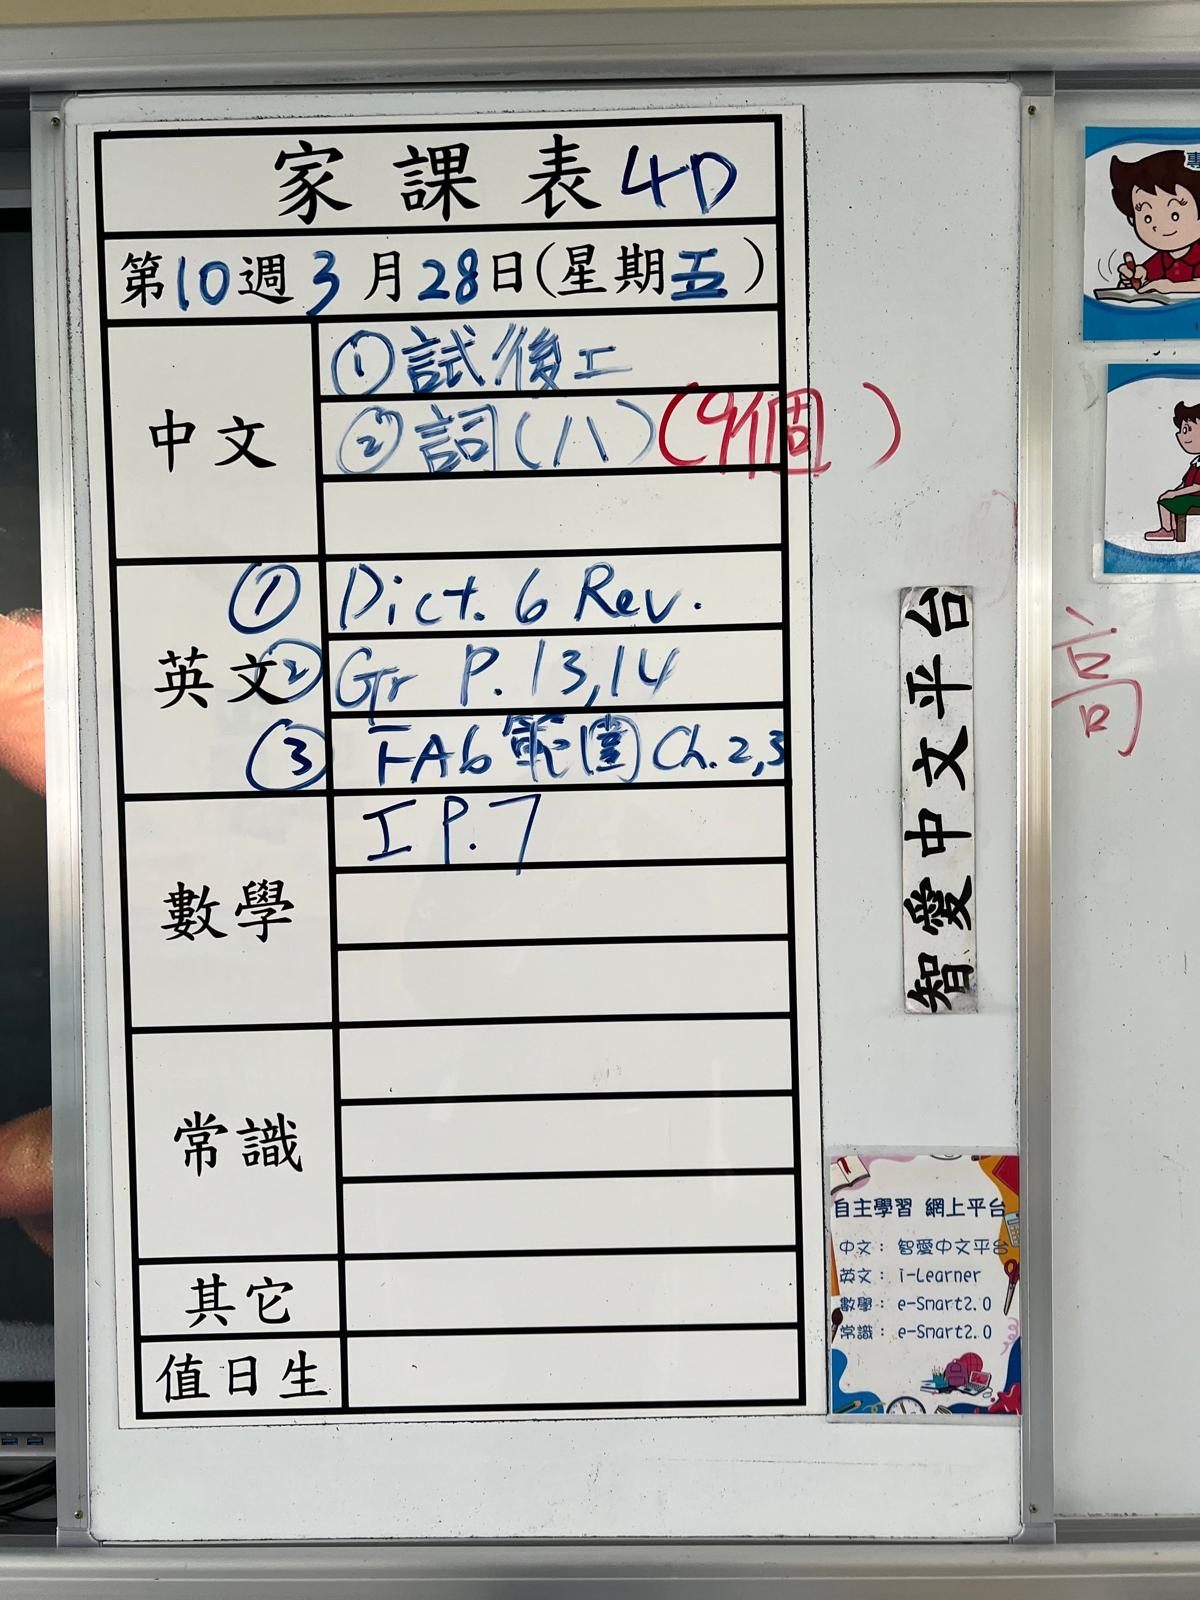 家課表 4D
第10週3月28日(星期五)
中文
①試後工
②詞(八)(9個)
英文
① Dict. 6 Rev.
② Gr P. 13,14
③ FA6 範圍 Ch. 2,3
數學
工 P.7
常識
其它
值日生
智愛中文平台
高
自主學習 網上平台
中文： 智愛中文平台
英文： i-Learner
數學： e-Smart2.0
常識： e-Smart2.0